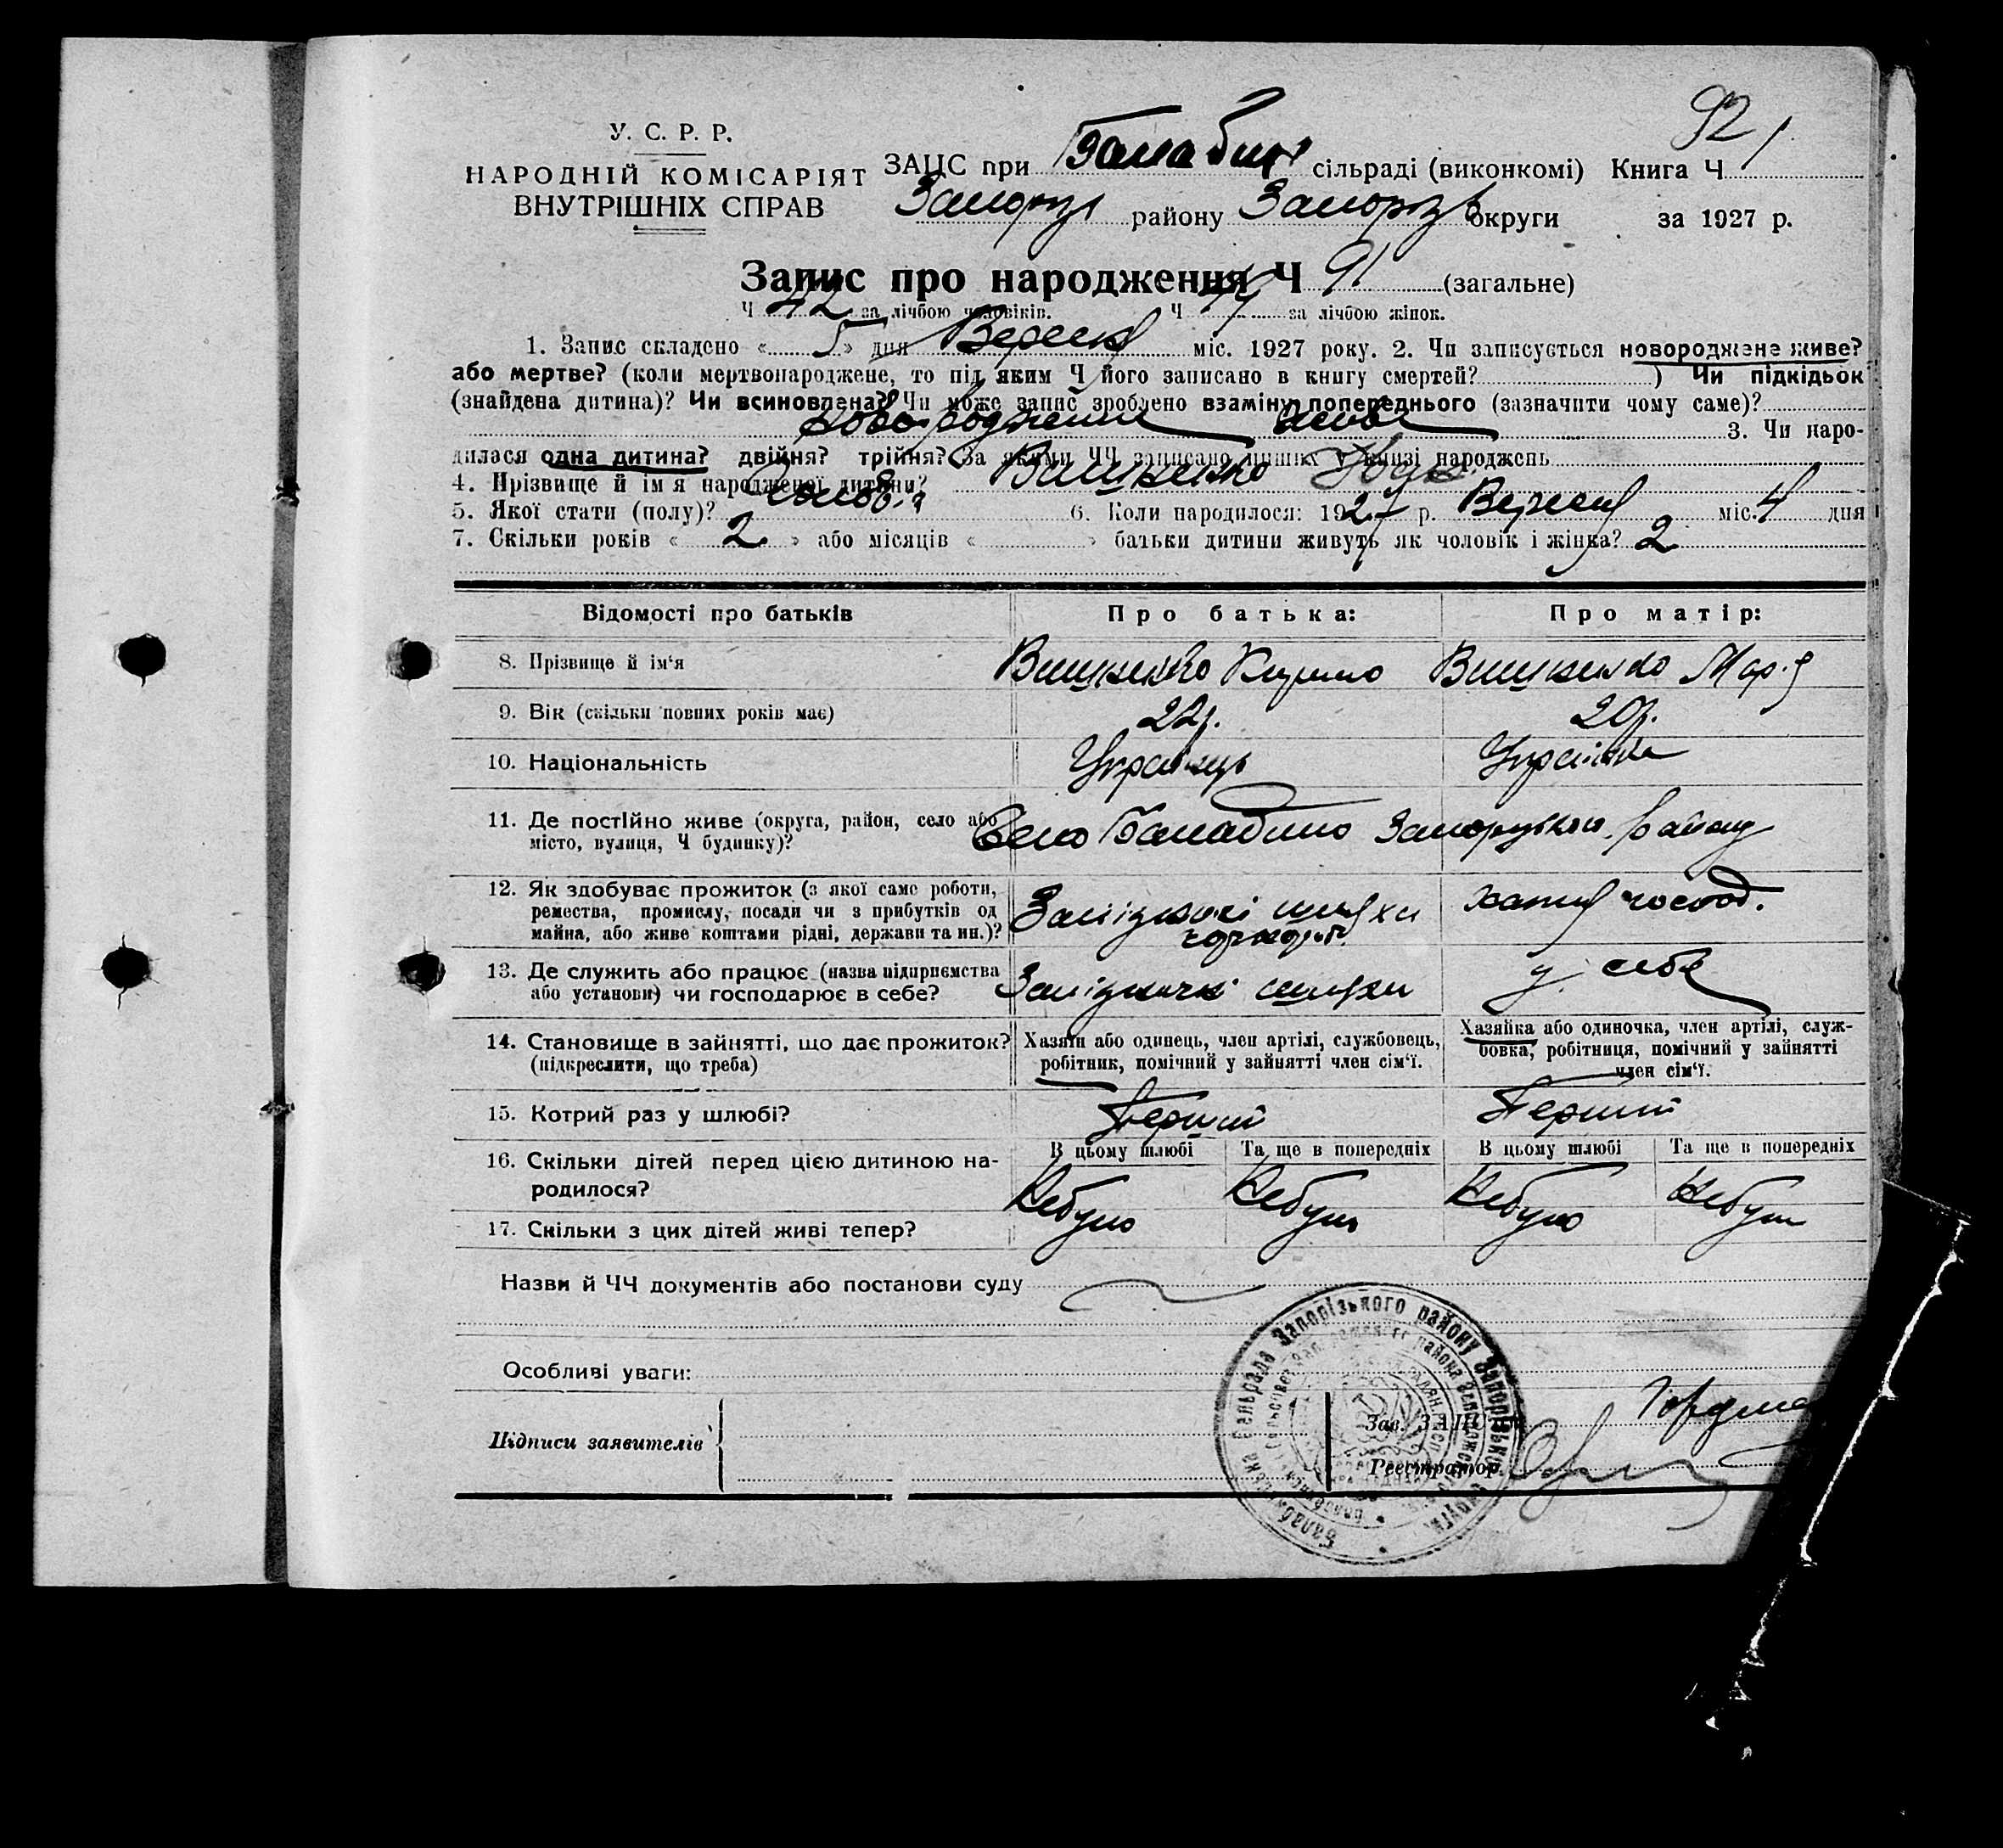 92
У. С. Р. Р.
НАРОДНІЙ КОМІСАРІЯТ
ВНУТРІШНІХ СПРАВ
ЗАЦС при Балабин сільраді (виконкомі) Книга Ч 1
Запоріз району Запоріз округи за 1927 р.
Запис про народження Ч 91 (загальне)
Ч 42 за лічбою чоловіків. Ч за лічбою жінок.
1. Запис складено « 5 » дня Вересня міс. 1927 року. 2. Чи записується новороджене живе?
або мертве? (коли мертвонароджене, то під яким Ч його записано в книгу смертей? ) Чи підкідьок
(знайдена дитина)? Чи всиновлена? Чи може запис зроблено взаміну попереднього (зазначити чому саме)?
новороджене 3. Чи наро-
дилася одна дитина? двійня? трійня? За якими ЧЧ записано инших у книзі народжень
4. Прізвище й ім'я народженої дитини? Вишненко
5. Якої стати (полу)? 6. Коли народилося: 1927 р. Вересня міс. 4 дня
7. Скільки років « 2 » або місяців « » батьки дитини живуть як чоловік і жінка? 2
Відомості про батьків Про батька: Про матір:
8. Прізвище й ім'я Вишненко Кирило Вишненко Марія
9. Вік (скільки повних років має) 22р. 20р.
10. Національність Українець Українка
11. Де постійно живе (округа, район, село або
місто, вулиця, Ч будинку)? Село Балабино Запорізького району
12. Як здобуває прожиток (з якої саме роботи,
ремества, промислу, посади чи з прибутків од
майна, або живе коштами рідні, держави та ин.)? Залізничі шляхи хатнє господ.
13. Де служить або працює (назва підприємства
або установи) чи господарює в себе? Залізничі шляхи у себе
14. Становище в зайнятті, що дає прожиток?
(підкреслити, що треба)
Хазяїн або одинець, член артілі, службовець,
робітник, помічний у зайнятті член сім'ї.
Хазяйка або одиночка, член артілі, служ-
бовка, робітниця, помічний у зайнятті
член сім'ї.
15. Котрий раз у шлюбі? Перший Перший
В цьому шлюбі Та ще в попередніх В цьому шлюбі Та ще в попередніх
16. Скільки дітей перед цією дитиною на-
родилося?
Небуло Небуло Небуло Небуло
17. Скільки з цих дітей живі тепер?
Назви й ЧЧ документів або постанови суду
Особливі уваги:
Підписи заявителів
Зав. ЗАЦС'ом
Реєстратор
Балабинська сельрада Запорізького району Запорізької округи